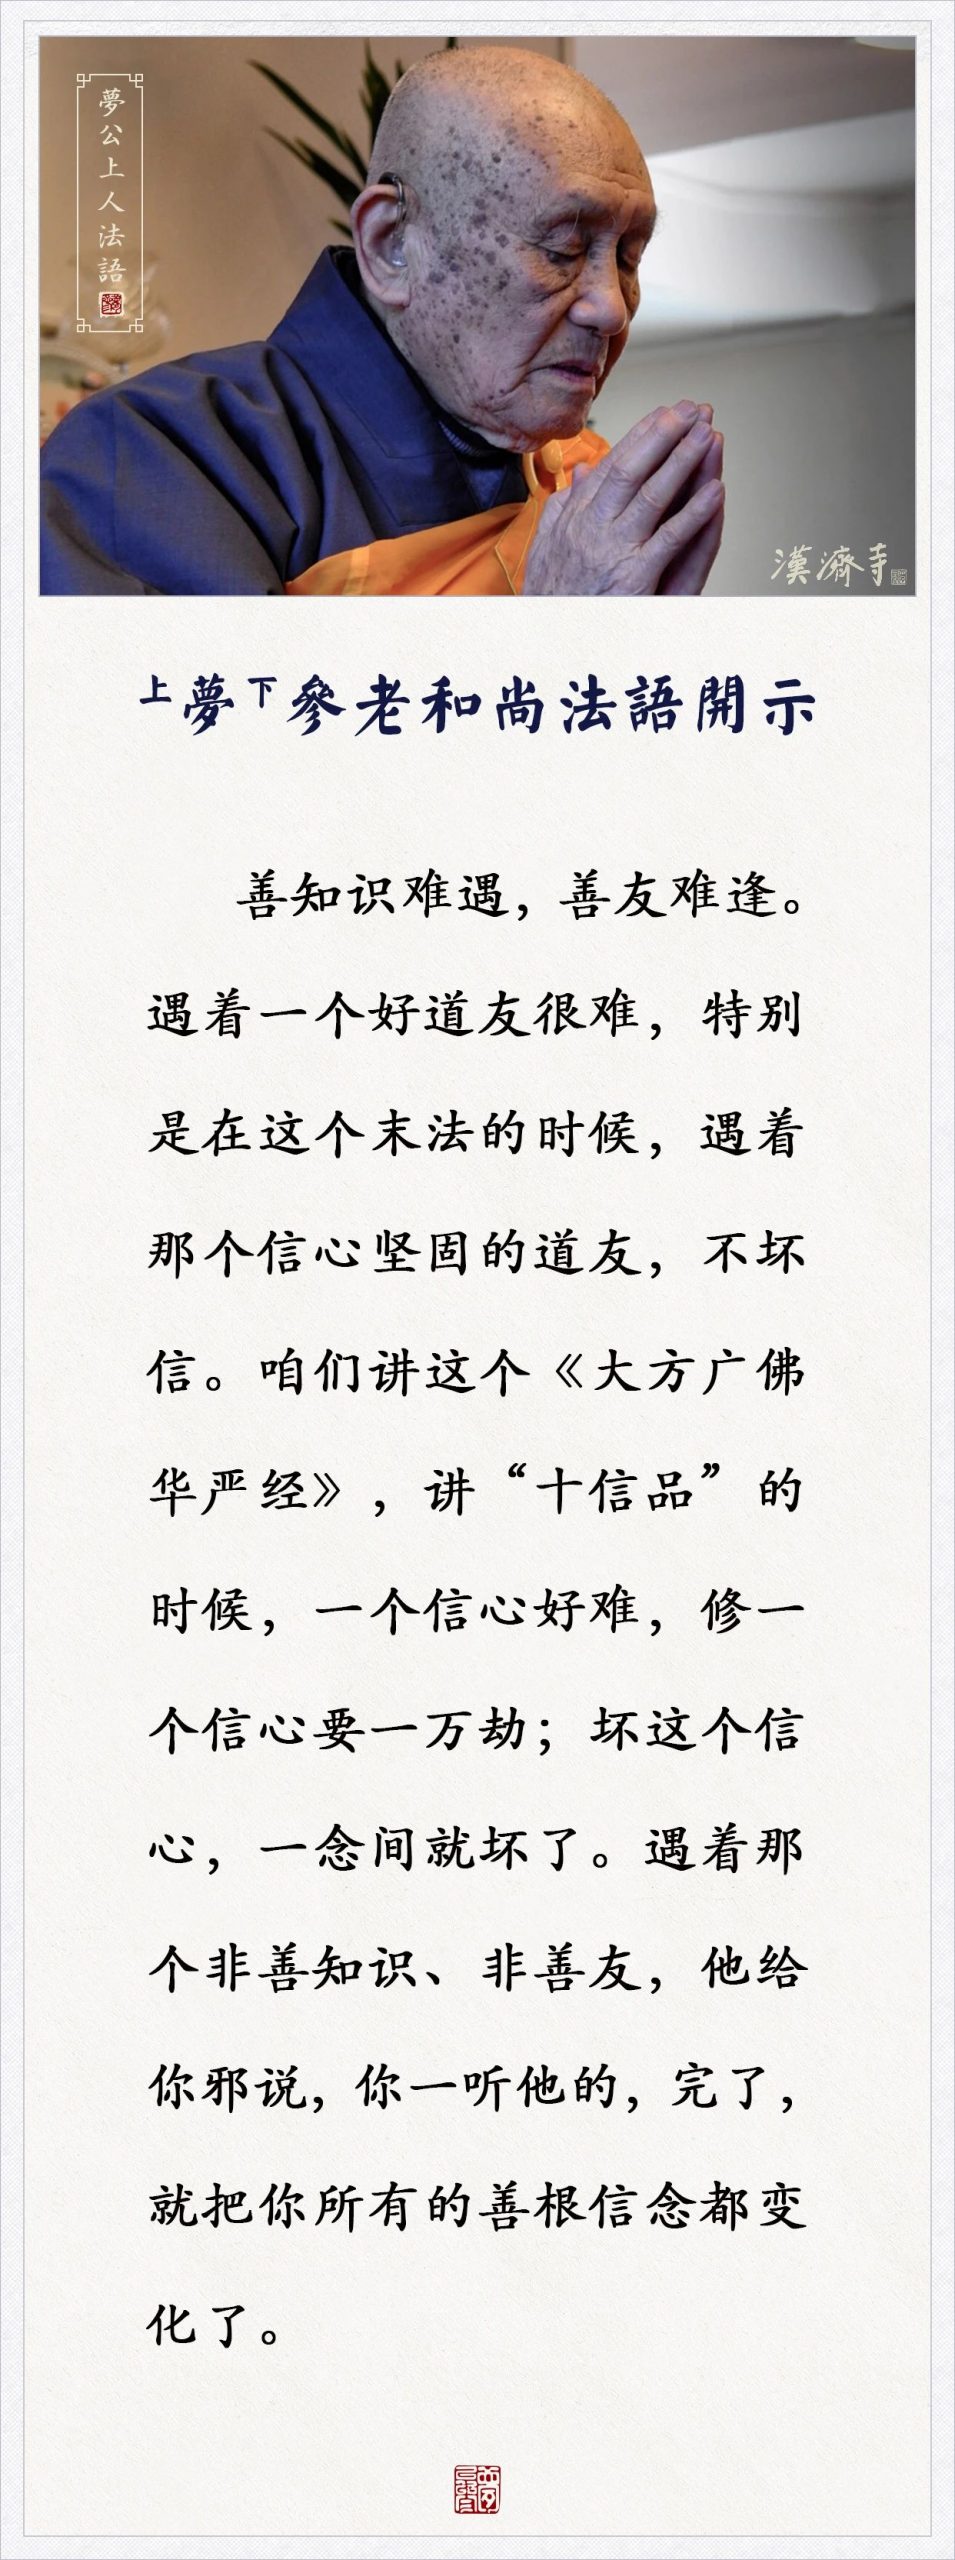 夢公上人法語
漢濟寺
上夢下參老和尚法語開示
善知识难遇，善友难逢。
遇着一个好道友很难，特别
是在这个末法的时候，遇着
那个信心坚固的道友，不坏
信。咱们讲这个《大方广佛
华严经》，讲“十信品”的
时候，一个信心好难，修一
个信心要一万劫；坏这个信
心，一念间就坏了。遇着那
个非善知识、非善友，他给
你邪说，你一听他的，完了，
就把你所有的善根信念都变
化了。